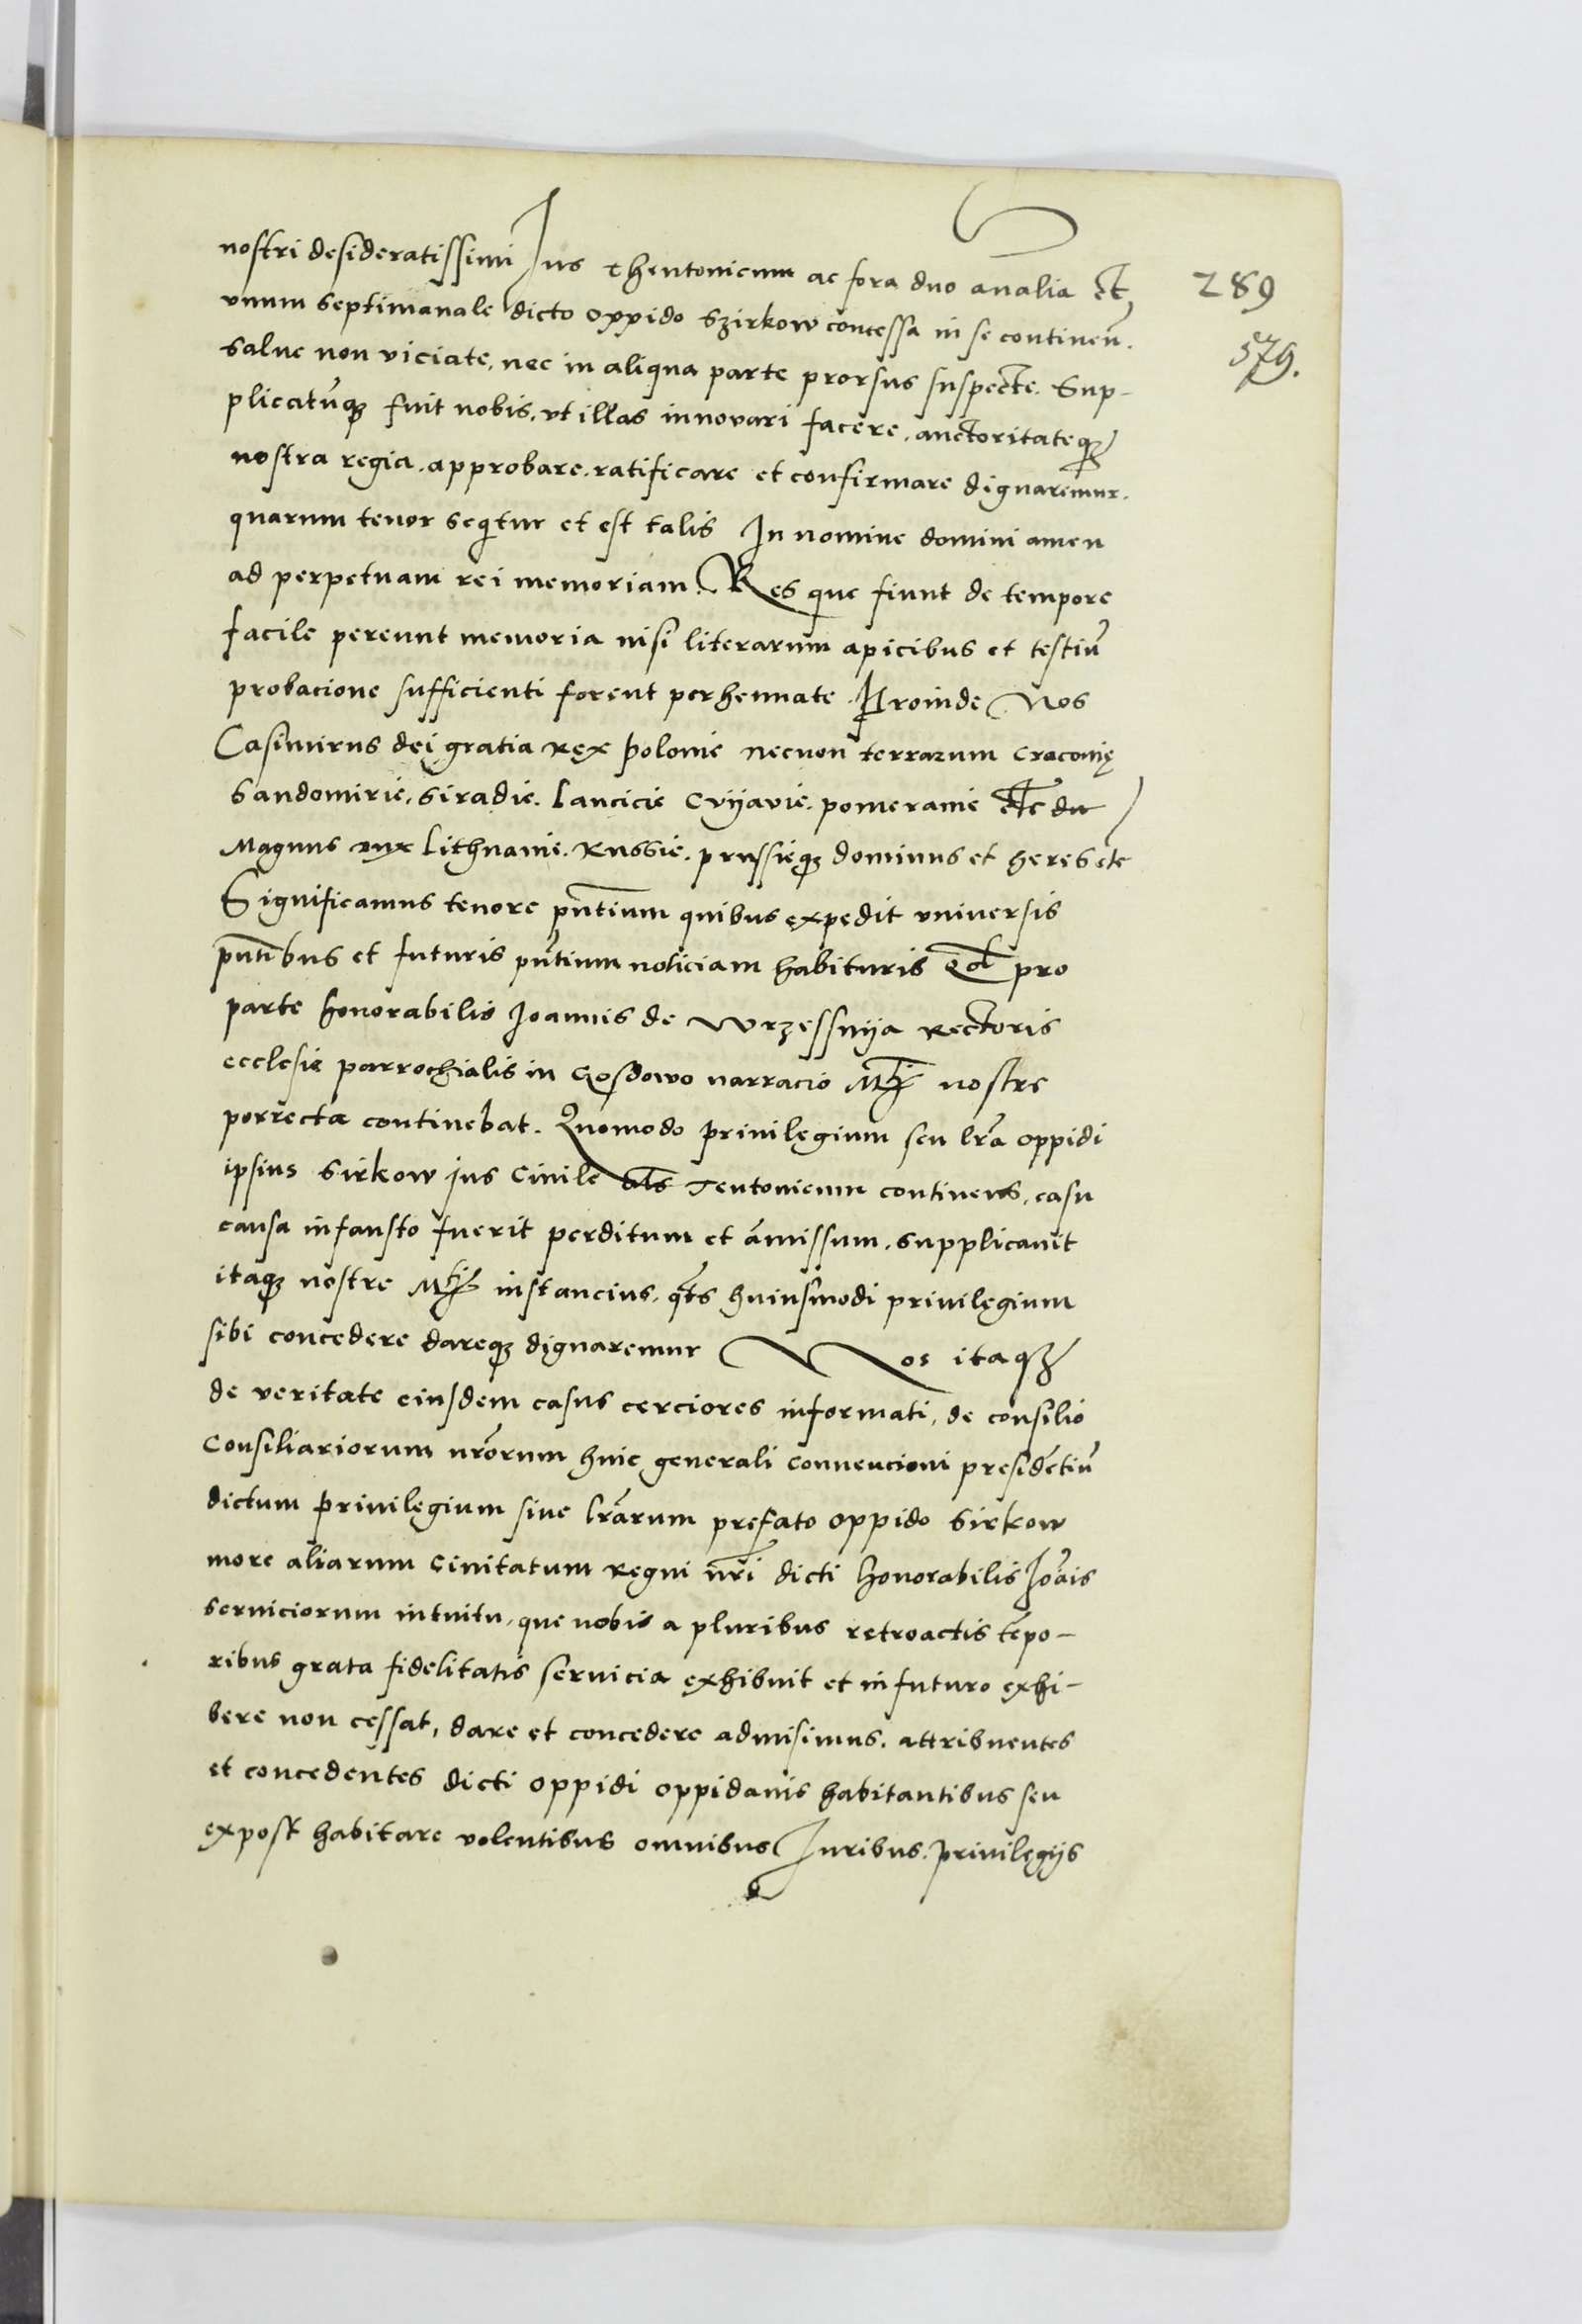 nostri desideratissimi Jus thentonicum ac fora duo anālia et
289
vnum septimanale dicto oppido Szirkow concessa in se continen̄.
579.
salue non viciate, nec in aliqua parte prorsus suspecte. Sup-
plicatūq₃ fuit nobis, vt illas innovari facere, auctoritateq₃
nostra regia, approbare, ratificare et confirmare dignaremur.
quarum tenor seqitur et est talis In nomine domini amen
ad perpetuam rei memoriam. Res que fiunt de tempore
facile pereunt memoria nisi literarum apicibus et testiū
probacione sufficienti forent perhennate. Proinde Nos
Casimirus dei gratia rex polonie necnon terrarum cracouię
Sandomirie, Siradie. Lancicie Cuyavie. pomeranie etc
Magnus dux Lithuanie. Russie. prussieq₃ dominus et heres etc
Significamus tenore pn̄tium quibus expedit vniuersis
pn̄tibus et futuris pn̄tium noticiam habituris qd pro
parte honorabilis Joannis de Wrzessnya rectoris
ecclesie parrochialis in Gosdowo narracio Mti nostre
porrecta continebat. Quomodo priuilegium seu lr̄a oppidi
ipsius Sirkow jus Ciuile als Teutonicum continens, casu
causa infausto fuerit perditum et āmissum. supplicauit
itaq₃ nostre Mti instancius, qts huiusmodi priuilegium
sibi concedere dareq₃ dignaremur Nos itaq₃
de veritate eiusdem casus cerciores informati, de consilio
Consiliariorum nr̄orum huic generali conuencioni presidētiū
dictum priuilegium siue lr̄arum prefato oppido Sirkow
more aliarum ciuitatum regni nr̄i dicti honorabilis Joāis
seruiciorum intuitu, que nobis a pluribus retroactis tēpo-
ribus grata fidelitatis seruicia exhibuit et in futuro exhi-
bere non cessat, dare et concedere admisimus, attribuentes
et concedentes dicti oppidi oppidanis habitantibus seu
expost habitare volentibus omnibus Juribus, priuilegijs